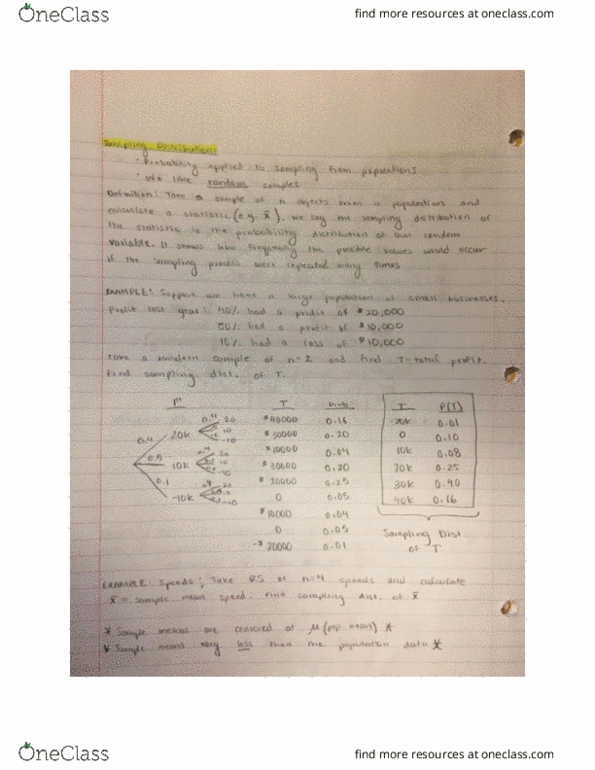 OneClass
find more resources at oneclass.com
Sampling Distributions
· Probability applied to sampling from populations
· We like random samples
Definition: Take a sample of n objects from a population and
calculate a statistic (e.g. x̄), we say the sampling distribution of
the statistic is the probability distribution of that random
variable. It shows how frequently the possible values would occur
if the sampling process were repeated many times
EXAMPLE: Suppose we have a large population of small businesses.
Profit last year: 40% had a profit of $20,000
50% had a profit of $10,000
10% had a loss of $10,000
Take a random sample of n=2 and find T=total profit.
Find sampling dist. of T.
T Prob T P(T)
0.4 20k 20 10 -10 $40000 0.16 -20k 0.01
$30000 0.20 0 0.10
$10000 0.04 10k 0.08
0.5 10k 20 10 -10 $30000 0.20 20k 0.25
$20000 0.25 30k 0.40
0 0.05 40k 0.16
0.1 -10k 20 10 -10 $10000 0.04
0 0.05 Sampling Dist.
-$20000 0.01 of T
EXAMPLE: Speeds; Take RS of n=4 speeds and calculate
x̄ = sample mean speed. Find sampling dist. of x̄
* Sample means are centered at μ (pop. mean) *
* Sample means vary less than the population data *
OneClass
find more resources at oneclass.com